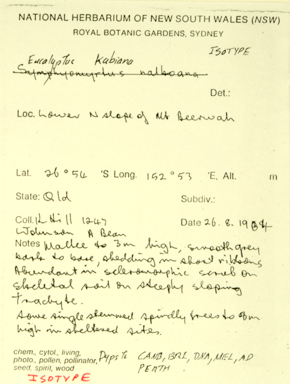 NATIONAL HERBARIUM OF NEW SOUTH WALES (NSW)
ROYAL BOTANIC GARDENS, SYDNEY
ISOTYPE
Eucalyptus Kabiana
Symphyomyrtus
Det.:
Loc. Lower N slope of Mt Beerwah
Lat. 26° 54 'S Long. 152° 53 'E, Alt. m
State: Qld Subdiv.:
Coll. K Hill 1247 Date 26. 8. 1984
L Johnson A Bean
Notes Mallee to 3m high, smooth grey
bark to base, shedding in short ribbons
Abundant in scleromorphic scrub on
skeletal soil on steeply sloping
trachyte.
Some single stemmed spindly trees to 8m
high in sheltered sites.
chem., cytol., living,
photo., pollen, pollinator,
seed, spirit, wood
Dups to CANB, BRI, DNA, MEL, AD
PERTH
ISOTYPE